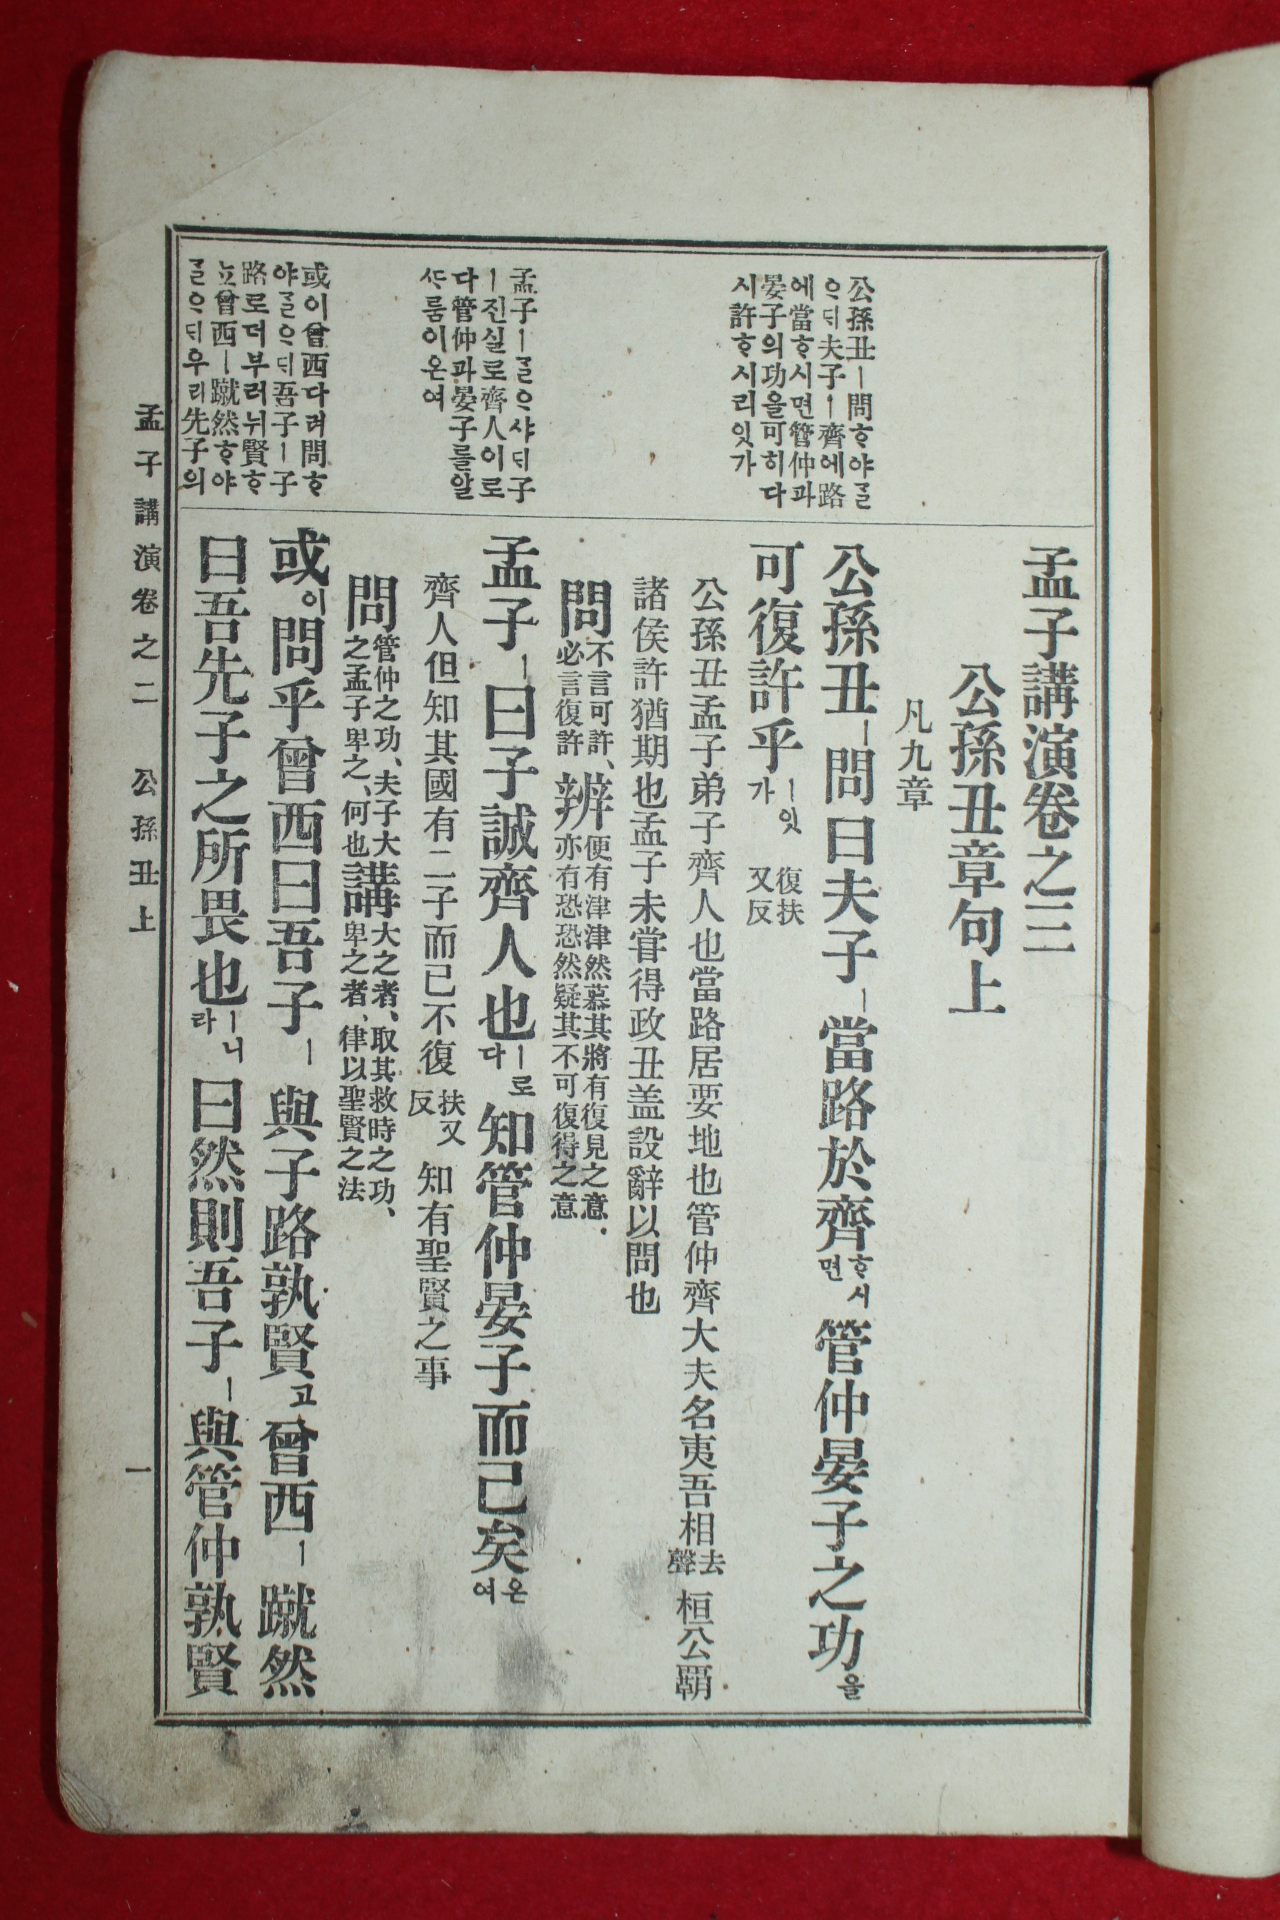 孟子講演卷之三
公孫丑章句上
凡九章
公孫丑ㅣ問ᄒᆞ야ᄀᆞᆯ
ᄋᆞᄃᆡ夫子ㅣ齊에路
에當ᄒᆞ시면管仲과
晏子의功을可히다
시許ᄒᆞ시리잇가
公孫丑ㅣ問曰夫子ㅣ當路於齊ᄒᆞ시면管仲晏子之功을
可復許乎ㅣ잇가 復扶又反
公孫丑孟子弟子齊人也當路居要地也管仲齊大夫名夷吾相去聲桓公霸
諸侯許猶期也孟子未甞得政丑盖設辭以問也
問不言可許、必言復許辨便有津津然慕其將有復見之意.亦有恐恐然疑其不可復得之意
孟子ㅣᄀᆞᆯᄋᆞ샤ᄃᆡ子
ㅣ진실로齊人이로
다管仲과晏子를알
ᄯᆞ름이온여
孟子ㅣ曰子誠齊人也ㅣ로다知管仲晏子而已矣온여
齊人但知其國有二子而已不復扶又反知有聖賢之事
問管仲之功、夫子大之孟子卑之、何也講大之者、取其救時之功、卑之者、律以聖賢之法
或이曾西다려問ᄒᆞ
야ᄀᆞᆯᄋᆞᄃᆡ吾子ㅣ子
路로더부러뉘賢ᄒᆞ
뇨曾西ㅣ蹴然ᄒᆞ야
ᄀᆞᆯᄋᆞᄃᆡ우리先子의
或이問乎曾西曰吾子ㅣ與子路孰賢고曾西ㅣ蹴然
曰吾先子之所畏也ㅣ니라曰然則吾子ㅣ與管仲孰賢
孟子講演卷之二 公孫丑上 一